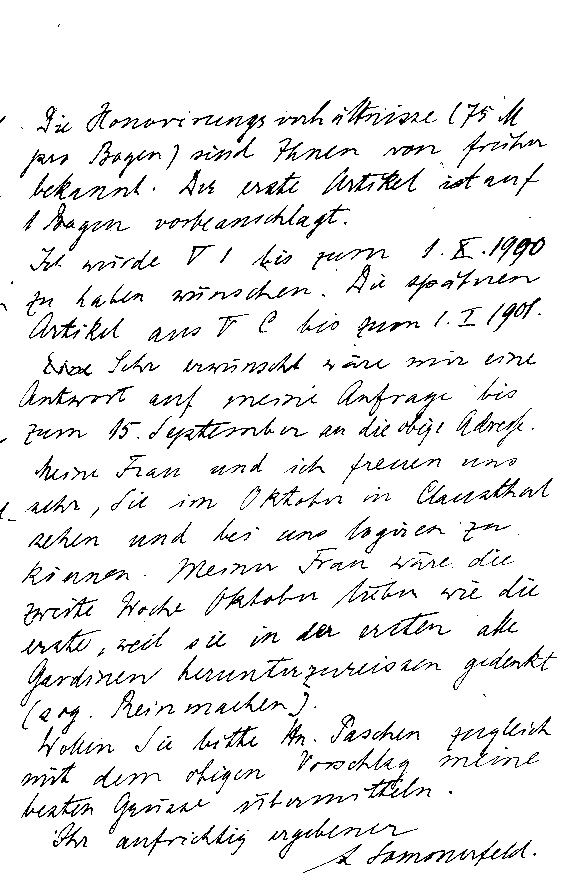 Die Honorirungsverhältnisse (75 M
pro Bogen) sind Ihnen von früher
bekannt. Der erste Artikel ist auf
1 Bogen vorbeanschlagt.
Ich würde V 1 bis zum 1. X. 1900
zu haben wünschen. Die späteren
Artikel aus V C bis zum 1. I 1901.
Sehr erwünscht wäre mir eine
Antwort auf meine Anfrage bis
zum 15. September an die obige Adresse.
Meine Frau und ich freuen uns
sehr, Sie im Oktober in Clausthal
sehen und bei uns logiren zu
können. Meiner Frau wäre die
zweite Woche Oktober lieber wie die
erste, weil sie in der ersten alle
Gardinen herunterzureissen gedenkt
(sog. Reinmachen).
Wollen Sie bitte Hn. Paschen zugleich
mit dem obigen Vorschlag meine
besten Grüsse übermitteln.
Ihr aufrichtig ergebener
A Sommerfeld.